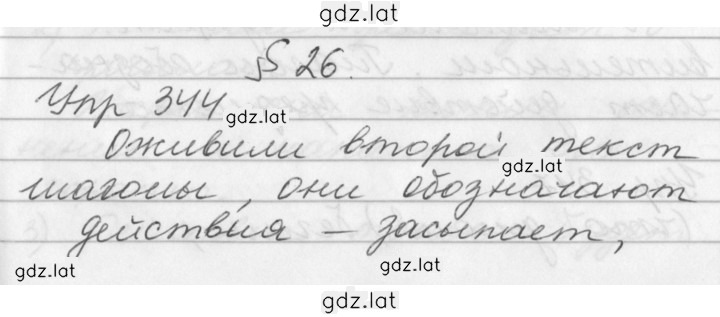 gdz.lat
§ 26.
Упр 344
gdz.lat
Оживили второй текст
gdz.lat
глаголы, они обозначают
действия – засыпает,
gdz.lat
gdz.lat
gdz.lat